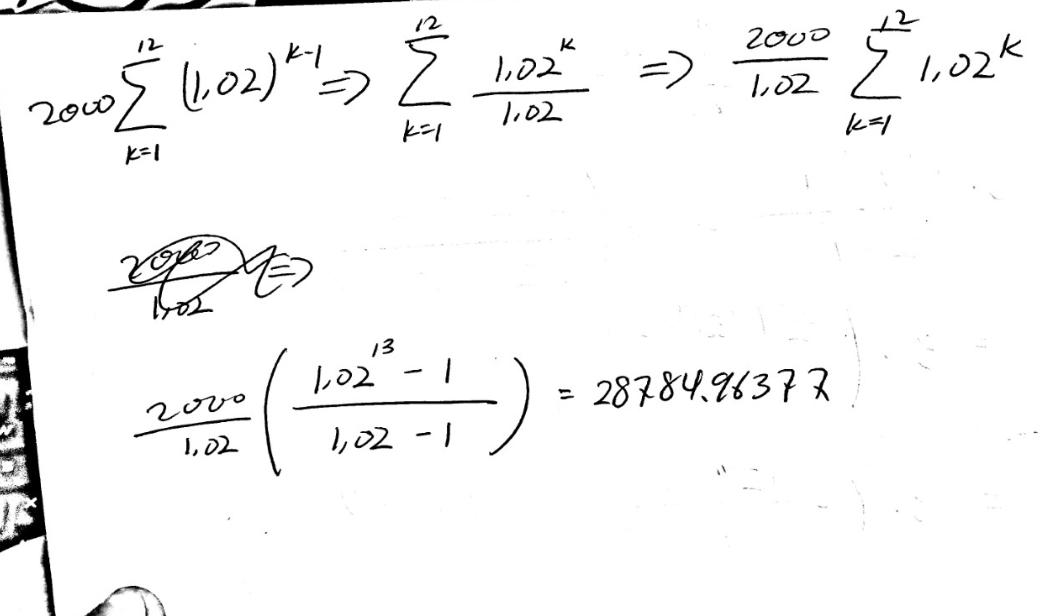 2000 \sum_{k=1}^{12} (1,02)^{k-1} => \sum_{k=1}^{12} \frac{1,02^k}{1,02} => \frac{2000}{1,02} \sum_{k=1}^{12} 1,02^k
\frac{2000}{1,02} =>
\frac{2000}{1,02} \left( \frac{1,02^{13} - 1}{1,02 - 1} \right) = 28784.96377